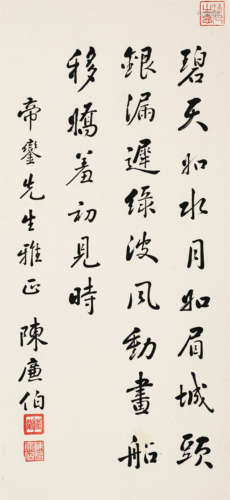 碧天如水月如眉城頭
銀漏遲綠波風動畫船
移嬌羞初見時
帝鑾先生雅正
陳廉伯